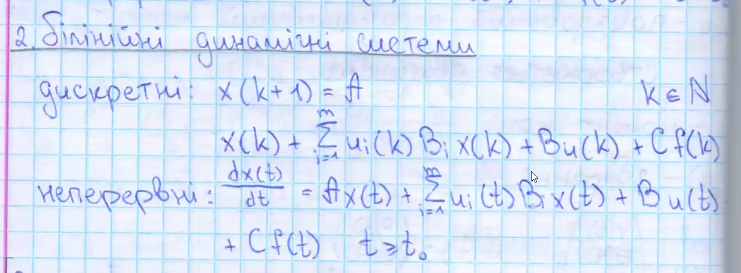 2. Білінійні динамічні системи
дискретні: x(k+1) = A k ∈ N
x(k) + ∑_{i=1}^{m} u_i(k) B_i x(k) + Bu(k) + Cf(k)
неперервні: dx(t)/dt = Ax(t) + ∑_{i=1}^{m} u_i(t) B_i x(t) + Bu(t)
+ Cf(t) t ≥ t₀